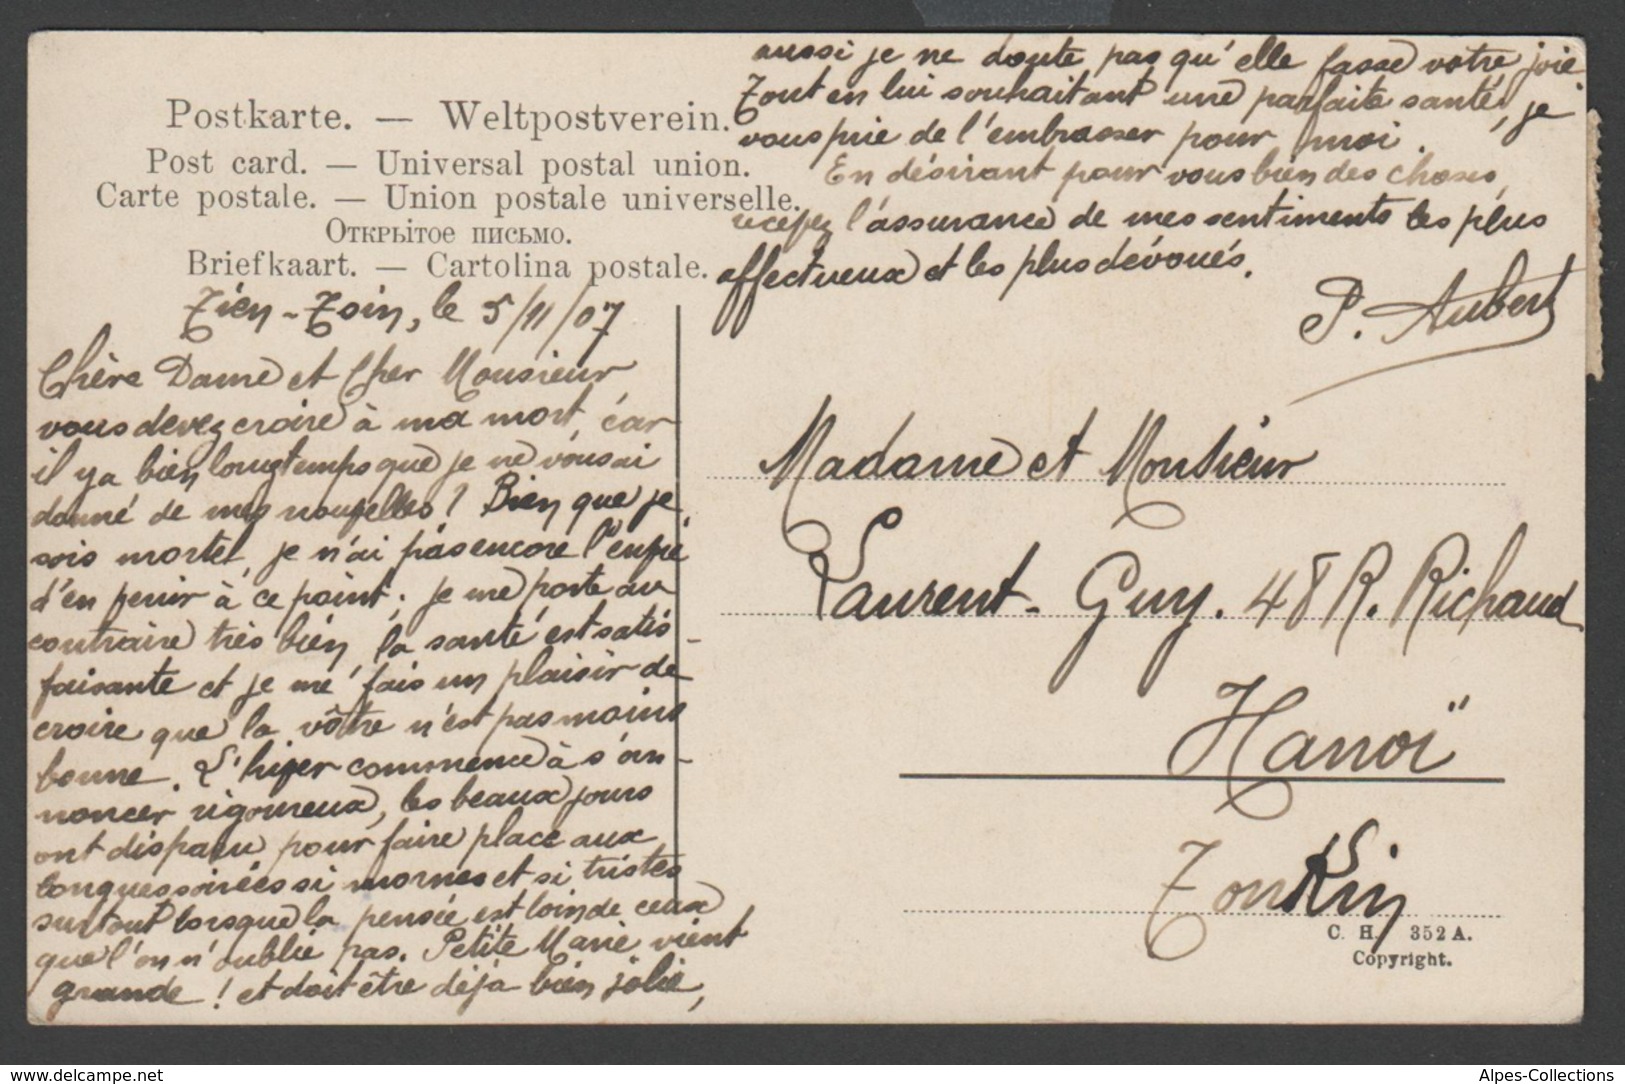 Postkarte. — Weltpostverein.
Post card. — Universal postal union.
Carte postale. — Union postale universelle.
Открытое письмо.
Briefkaart. — Cartolina postale.
Tien-Tsin, le 5/11/07
Chère Dame et Cher Monsieur
vous devez croire à ma mort, car
il y a bien longtemps que je ne vous ai
donné de mes nouvelles! Bien que je
sois mortel, je n'ai pas encore l'envie
d'en venir à ce point; je me porte au
contraire très bien, la santé est satis-
faisante et je me fais un plaisir de
croire que la vôtre n'est pas moins
bonne. L'hiver commence à s'an-
noncer rigoureux, les beaux jours
ont disparu pour faire place aux
longues soirées si mornes et si tristes
surtout lorsque la pensée est loin de ceux
que l'on n'oublie pas. Petite Marie vient
grande! et doit être déjà bien jolie,
aussi je ne doute pas qu'elle fasse votre joie.
Tout en lui souhaitant une parfaite santé, je
vous prie de l'embrasser pour moi.
En désirant pour vous bien des choses,
recevez l'assurance de mes sentiments les plus
affectueux et les plus dévoués.
P. Aubert
Madame et Monsieur
Laurent-Guy. 48 R. Richaud
Hanoï
Tonkin
C. H. 352 A.
Copyright.
www.delcampe.net
Alpes-Collections